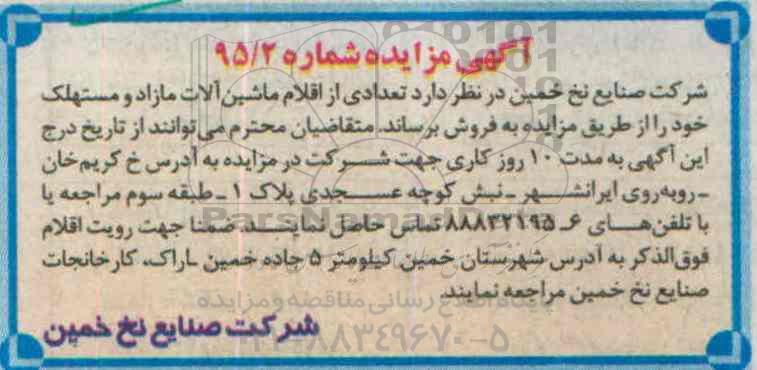 آگهی مزایده شماره ۹۵/۲
شرکت صنایع نخ خمین در نظر دارد تعدادی از اقلام ماشین آلات مازاد و مستهلک
خود را از طریق مزایده به فروش برساند. متقاضیان محترم می‌توانند از تاریخ درج
این آگهی به مدت ۱۰ روز کاری جهت شرکت در مزایده به آدرس خ کریم‌خان
ـ روبه‌روی ایرانشهر ـ نبش کوچه عسجدی پلاک ۱ ـ طبقه سوم مراجعه یا
با تلفن‌های ۶ـ۸۸۸۳۲۱۹۵ تماس حاصل نمایند. ضمنا جهت رویت اقلام
فوق‌الذکر به آدرس شهرستان خمین کیلومتر ۵ جاده خمین ـ اراک، کارخانجات
صنایع نخ خمین مراجعه نمایند.
پایگاه اطلاع رسانی مناقصه و مزایده
شرکت صنایع نخ خمین
۰۲۱-۸۸۳۴۹۶۷۰-۵
ParsNamadData